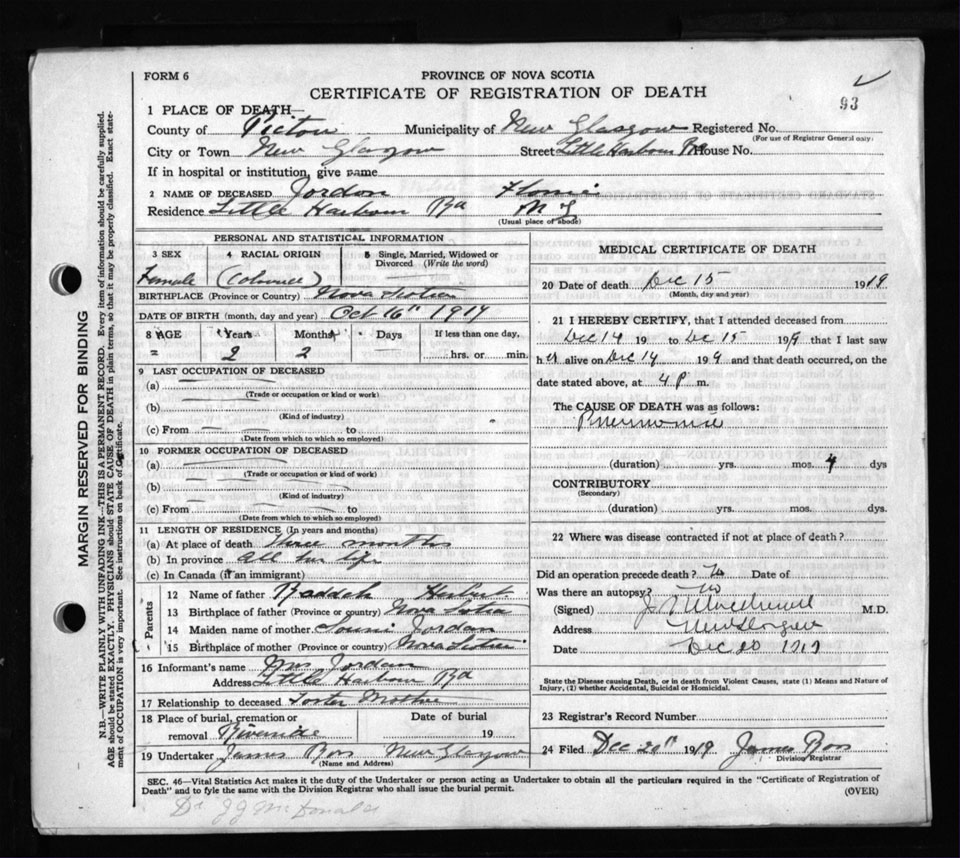 FORM 6
PROVINCE OF NOVA SCOTIA
CERTIFICATE OF REGISTRATION OF DEATH
93
1 PLACE OF DEATH—
County of Pictou Municipality of New Glasgow Registered No.
(For use of Registrar General only)
City or Town New Glasgow Street Little Harbour Rd House No.
If in hospital or institution, give name
2 NAME OF DECEASED Jordan
Residence Little Harbour Rd
(Usual place of abode)
PERSONAL AND STATISTICAL INFORMATION
3 SEX 4 RACIAL ORIGIN 5 Single, Married, Widowed or Divorced (Write the word)
Female
BIRTHPLACE (Province or Country) Nova Scotia
DATE OF BIRTH (month, day and year) Oct 16th 1917
8 AGE Years Months Days If less than one day,
2 2 hrs. or min.
9 LAST OCCUPATION OF DECEASED
(a)
(Trade or occupation or kind or work)
(b)
(Kind of industry)
(c) From to
(Date from which to which so employed)
10 FORMER OCCUPATION OF DECEASED
(a)
(Trade or occupation or kind or work)
(b)
(Kind of industry)
(c) From to
(Date from which to which so employed)
11 LENGTH OF RESIDENCE (In years and months)
(a) At place of death three months
(b) In province all her life
(c) In Canada (if an immigrant)
Parents
12 Name of father Herbert
13 Birthplace of father (Province or country) Nova Scotia
14 Maiden name of mother Jordan
15 Birthplace of mother (Province or country) Nova Scotia
16 Informant's name Mrs Jordan
Address Little Harbour Rd
17 Relationship to deceased Foster Mother
18 Place of burial, cremation or Date of burial
removal Riverside 19
19 Undertaker James Ross New Glasgow
(Name and Address)
MEDICAL CERTIFICATE OF DEATH
20 Date of death Dec 15 1919
(Month, day and year)
21 I HEREBY CERTIFY, that I attended deceased from
Dec 14 19 to Dec 15 1919 that I last saw
her alive on Dec 14 1919 and that death occurred, on the
date stated above, at 4 P m.
The CAUSE OF DEATH was as follows:
Pneumonia
(duration) yrs. mos. 4 dys
CONTRIBUTORY
(Secondary)
(duration) yrs. mos. dys.
22 Where was disease contracted if not at place of death?
Did an operation precede death? No Date of
Was there an autopsy? No
(Signed) M.D.
Address New Glasgow
Date Dec 20 1919
State the Disease causing Death, or in death from Violent Causes, state (1) Means and Nature of Injury, (2) whether Accidental, Suicidal or Homicidal.
23 Registrar's Record Number
24 Filed Dec 20th 1919 James Ross
Division Registrar
SEC. 46—Vital Statistics Act makes it the duty of the Undertaker or person acting as Undertaker to obtain all the particulars required in the "Certificate of Registration of
Death" and to fyle the same with the Division Registrar who shall issue the burial permit.
(OVER)
Dr JJ McDonald
MARGIN RESERVED FOR BINDING
N.B.—WRITE PLAINLY WITH UNFADING INK—THIS IS A PERMANENT RECORD. Every item of information should be carefully supplied.
AGE should be stated EXACTLY. PHYSICIANS should STATE CAUSE OF DEATH in plain terms, so that it may be properly classified. Exact statement of OCCUPATION is very important. See instructions on back of Certificate.